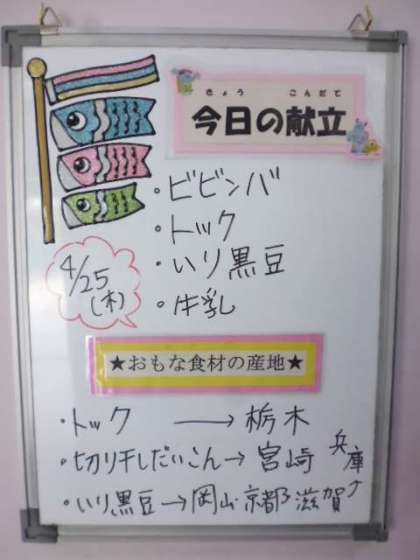 きょう こんだて
今日の献立
・ビビンバ
・トック
・いり黒豆
・牛乳
4/25
(木)
★おもな食材の産地★
・トック → 栃木
・切り干しだいこん→宮崎
・いり黒豆→岡山京都滋賀
兵庫